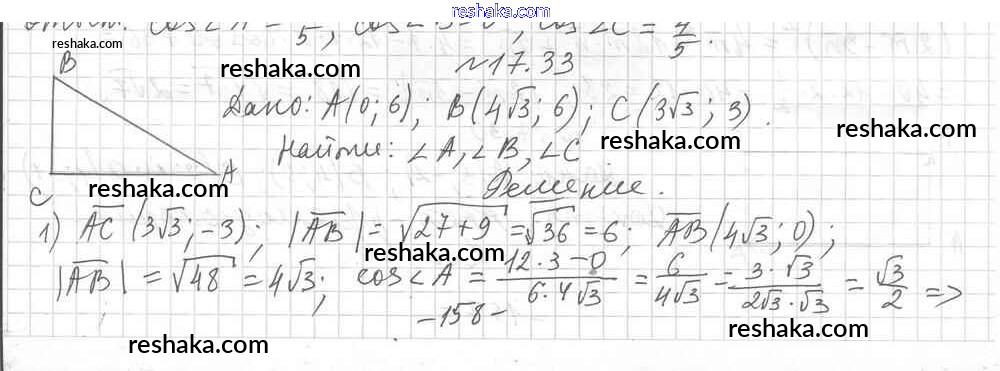 reshaka.com
Ответ: cos∠A = 3/5, cos∠B = 0, cos∠C = 4/5.
reshaka.com
№17.33
B
reshaka.com
Дано: A(0; 6); B(4√3; 6); C(3√3; 3).
reshaka.com
reshaka.com
Найти: ∠A, ∠B, ∠C
C
A
reshaka.com
Решение.
reshaka.com
1) AC (3√3; -3); |AB| = √27+9 = √36 = 6; AB(4√3; 0);
reshaka.com
|AB| = √48 = 4√3; cos∠A = 12·3-0/6·4√3 = 6/4√3 = 3·√3/2√3·√3 = √3/2 =>
-158-
reshaka.com
reshaka.com